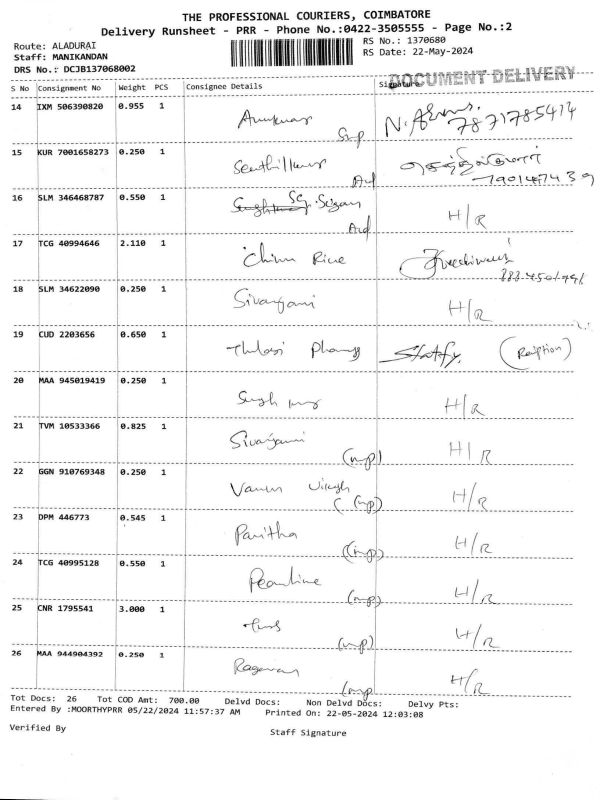 THE PROFESSIONAL COURIERS, COIMBATORE
Delivery Runsheet - PRR - Phone No.:0422-3505555 - Page No.:2
Route: ALADURAI
RS No.: 1370680
Staff: MANIKANDAN
RS Date: 22-May-2024
DRS No.: DCJB137068002
DOCUMENT DELIVERY
S No Consignment No Weight PCS Consignee Details Signature
14 IXM 506390820 0.955 1
7871785414
15 KUR 7001658273 0.250 1 Senthilkumar செந்தில்குமார்
7901487439
16 SLM 346468787 0.550 1 H/R
17 TCG 40994646 2.110 1
18 SLM 34622090 0.250 1 Sivaranjani H/R
19 CUD 2203656 0.650 1 Thulasi Pharmacy
20 MAA 945019419 0.250 1 H/R
21 TVM 10533366 0.825 1 Sivaranjani (mp) H/R
22 GGN 910769348 0.250 1 (mp) H/R
23 DPM 446773 0.545 1 Pavitha (mp) H/R
24 TCG 40995128 0.550 1 (mp) H/R
25 CNR 1795541 3.000 1 (mp) H/R
26 MAA 944904392 0.250 1 (mp H/R
Tot Docs: 26 Tot COD Amt: 700.00 Delvd Docs: Non Delvd Docs: Delvy Pts:
Entered By :MOORTHYPRR 05/22/2024 11:57:37 AM Printed On: 22-05-2024 12:03:08
Verified By
Staff Signature